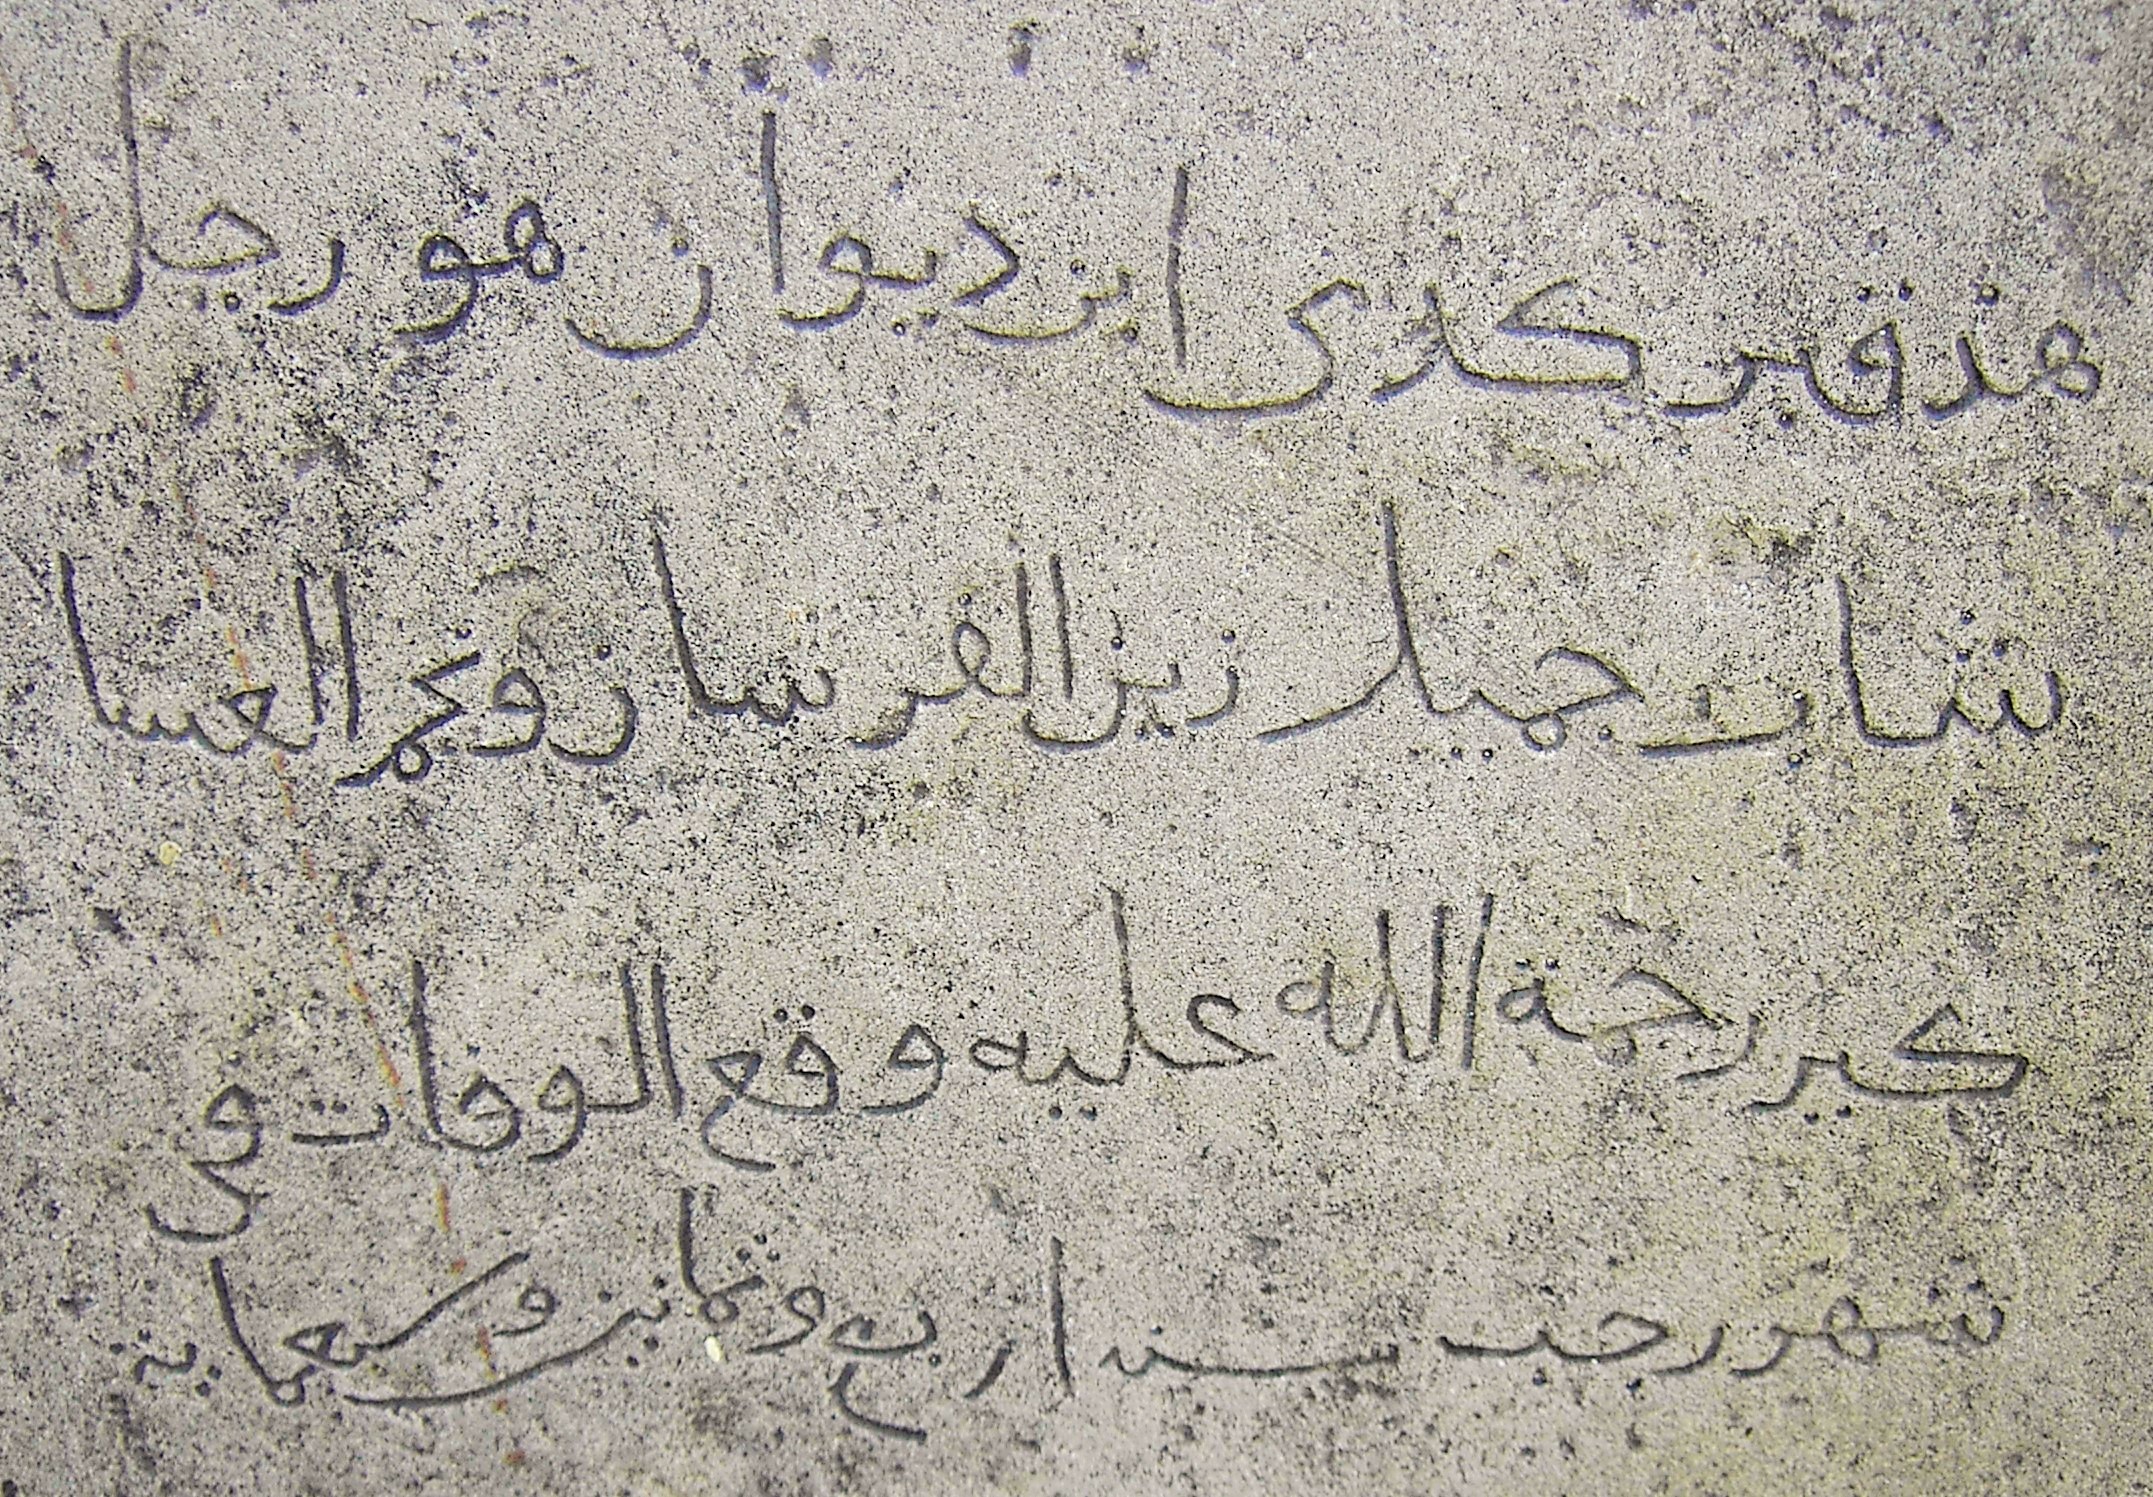 هذ قبر كدى ابن ديوان هو رجل
شاب جميل زين الفرسان و نجم العسا
كير رحمة الله عليه وقع الوفات في
شهر رجب سنه اربع و ثمانين و سبعماية